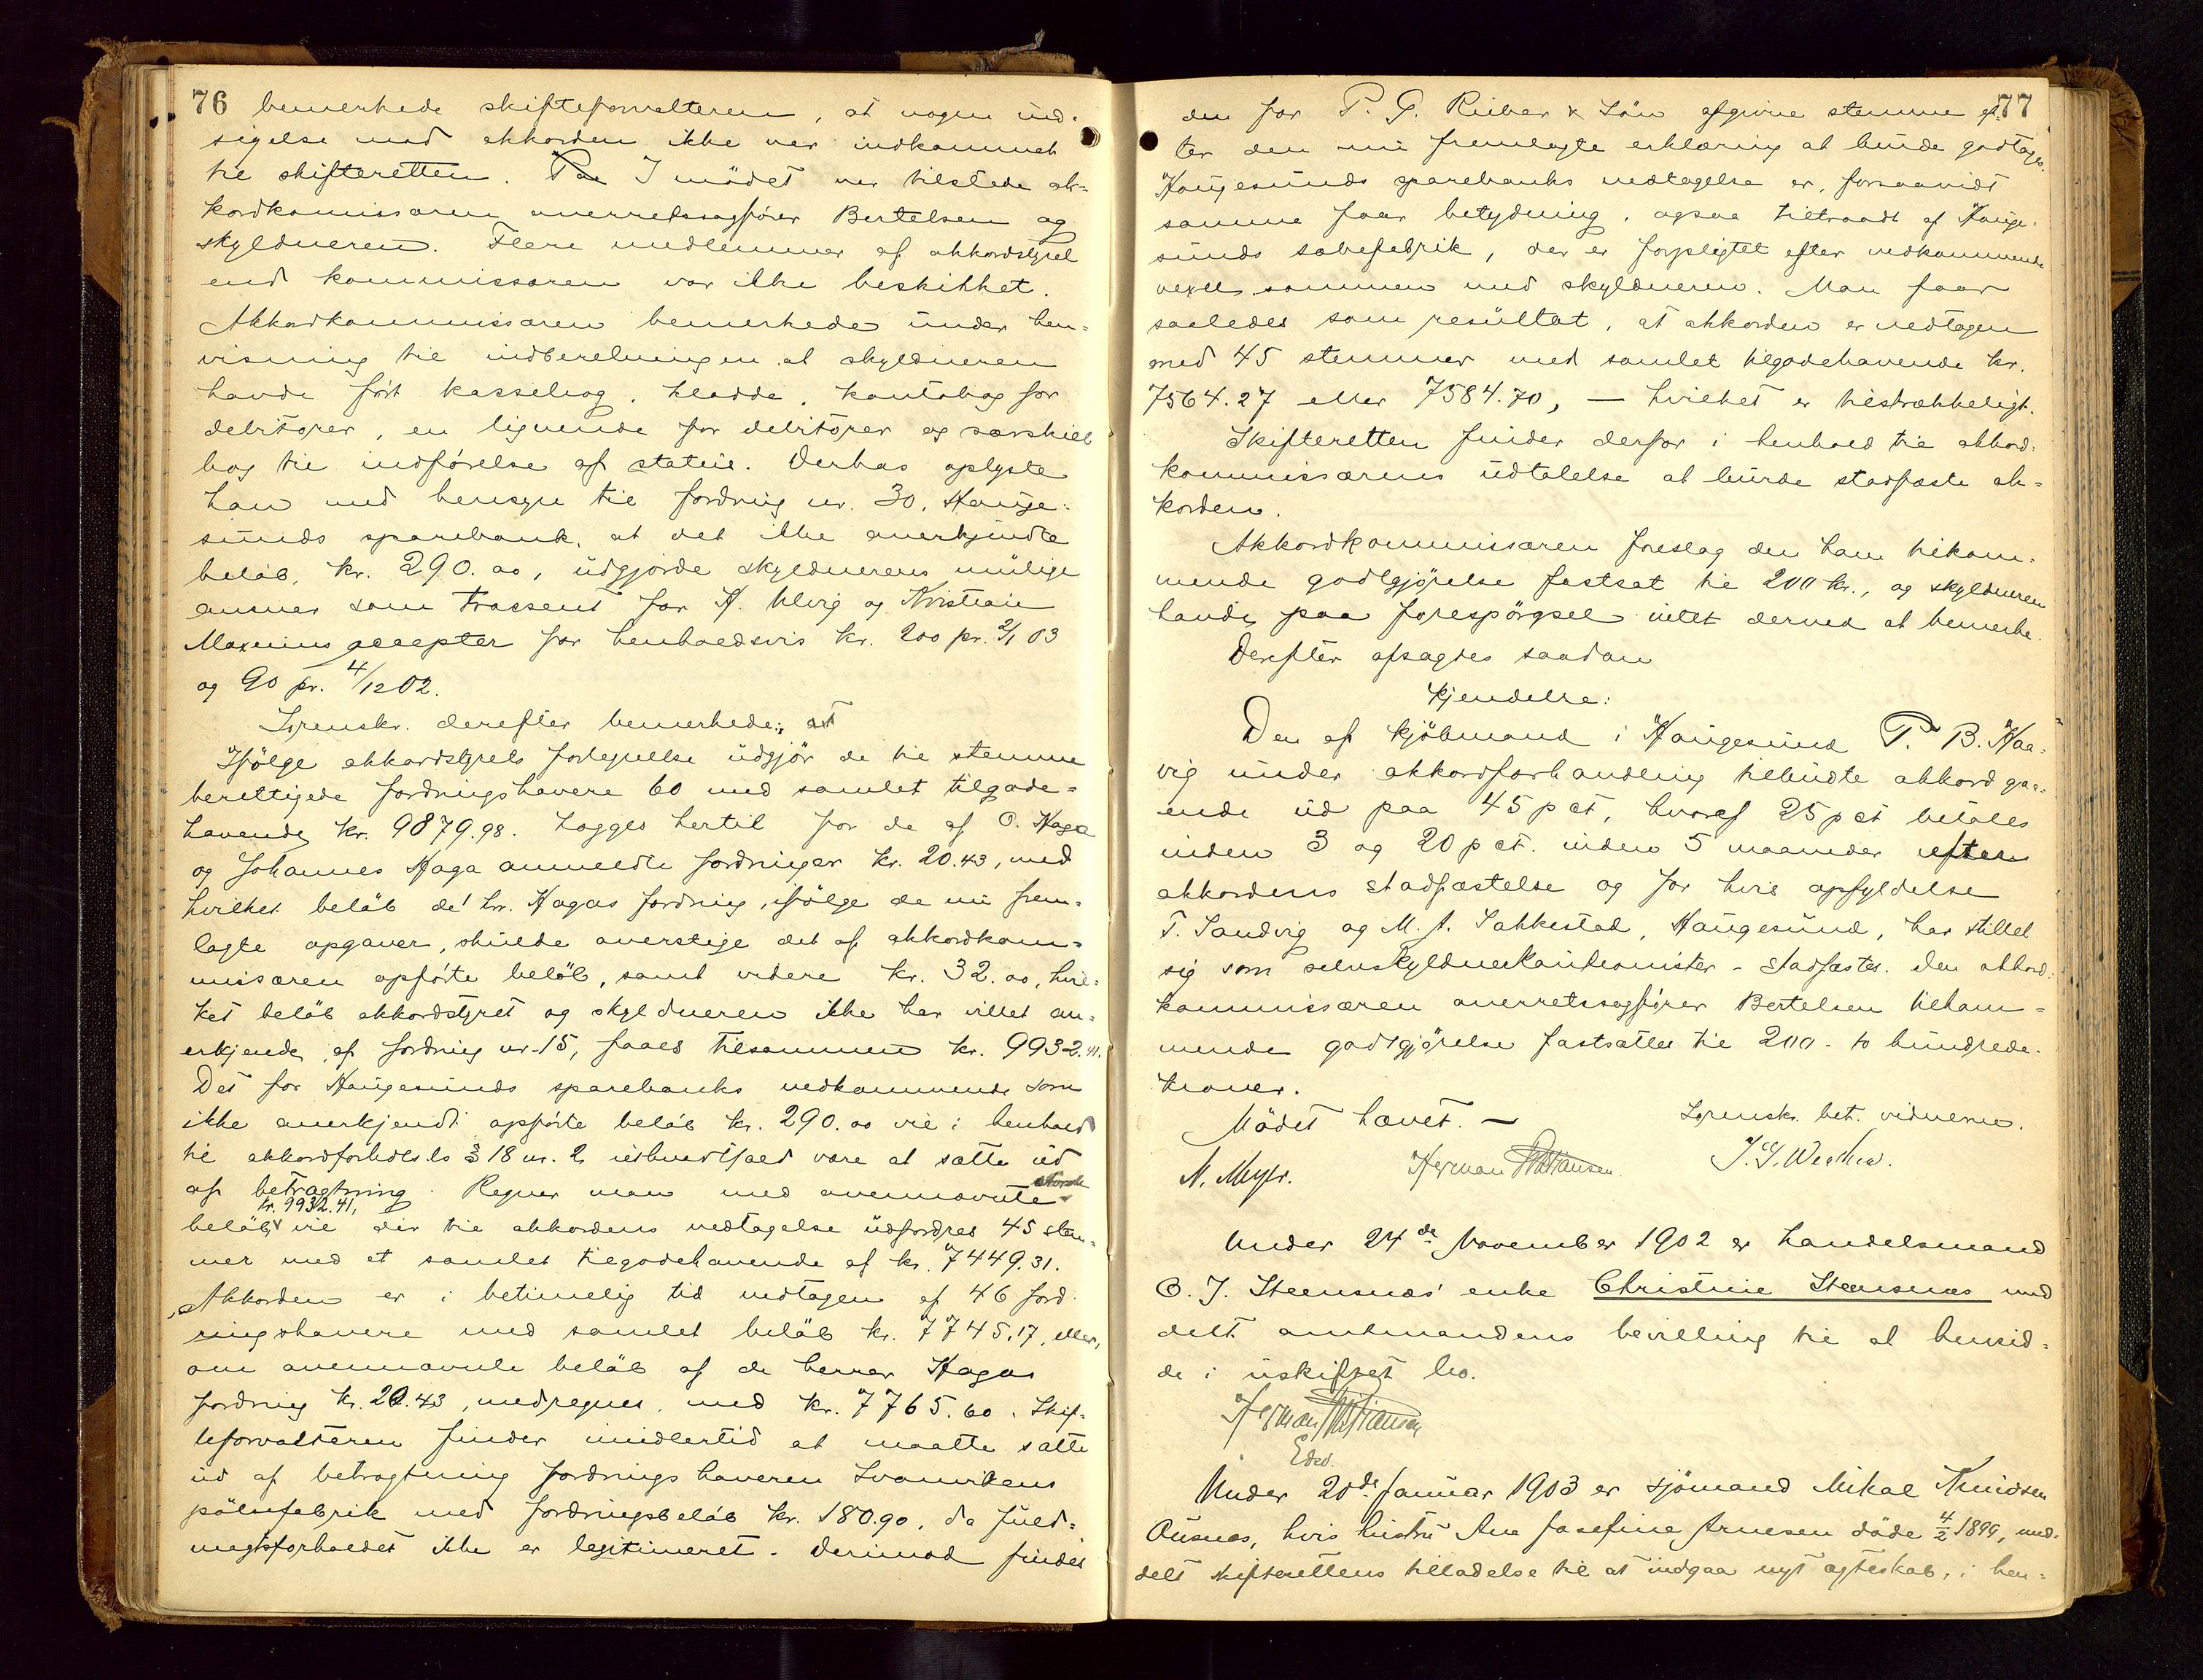 76 bemerkede skifteforvalteren, at nogen ind-
sigelse mod akkorden ikke var indkommet
til skifteretten. Paa I mödet var tilstede ak-
kordkomissæren overretssagförer Bertelsen og
skyldneren. Flere medlemmer af akkordstyret
end kommissæren var ikke beskikket.
Akkordkommissæren bemerkede under hen-
visning til indberetningen at skyldneren
havde fört kassebog, kladde, kontobog for
debitorer, en lignende for debitorer og særskilt
bog til indförelse af status. Derhos oplyste
han med hensyn til fordring nr. 30, Hauge-
sunds sparebank, at det ikke anerkjendte
belöb, kr. 290.00, udgjorde skyldnerens mulige
ansvar som trassent for H. Ulvig og Kristian
Maxenius accepter for henholdsvis kr. 200 pr. 2/1 03
og 90 pr. 4/12 02.
Sorenskr. derefter bemerkede: at
Ifölge akkordstyrets fortegnelse udgjör de til stemme
berettigede fordringshavere 60 med samlet tilgode-
havende kr. 9879.98. Lægges hertil for de af O. Haga
og Johannes Haga anmeldte fordringer kr. 20.43, med
hvilket belöb de hr. Hagas fordring, ifölge de nu frem-
lagte opgaver, skulde overstige det af akkordkom-
missæren opförte belöb, samt videre kr. 32.00, hvil-
ket belöb akkordstyret og skyldneren ikke har villet an-
erkjende af fordring nr. 15, faaes tilsammen kr. 9932.41.
Det for Haugesunds sparebanks vedkommende som
ikke anerkjendt opförte belöb kr. 290.00 vil i henhold
til akkordforhdls.ls § 18 nr. 2 være at sætte ud
af betragtning. Regner man med ovennævnte störste
belöb kr. 9932.41, vil der til akkordens vedtagelse udfordres 45 stem-
mer med et samlet tilgodehavende af kr. 7449.31.
Akkorden er i betimelig tid vedtagen af 46 ford-
ringshavere med samlet belöb kr. 7745.17, eller,
om ovennævnte belöb af de herrer Hagas
fordring kr. 20.43, medregnes, med kr. 7765.60. Skif-
teforvalteren finder imidlertid at maatte sætte
ud af betragtning fordringshaveren Svanvikens
pölsefabrik med fordringsbelöb kr. 180.90, da fuld-
magtsforholdet ikke er legitimeret. Derimod findes
77
den for P. G. Rieber & Sön afgivne stemme ef-
ter den nu fremlagte erklæring at burde godtages.
Haugesunds sparebanks vedtagelse er, forsaavidt
samme faar betydning, ogsaa tiltraadt af Hauge-
sunds sæbefabrik, der er forpligtet efter vedkommende
vexel sammen med skyldneren. Man faar
saaledes som resultat, at akkorden er vedtagen
med 45 stemmer med samlet tilgodehavende kr.
7564.27 eller 7584.70, — hvilket er tilstrækkeligt.
Skifteretten finder derfor i henhold til akkord-
kommissærens udtalelse at burde stadfæste ak-
korden.
Akkordkommissæren foreslog den ham tilkom-
mende godtgjörelse fastsat til 200 kr., og skyldneren
havde paa forespörgsel intet derved at bemerke.
Derefter afsagdes saadan
Kjendelse:
Den af kjöbmand i Haugesund P. B. Haa-
vig under akkordforhandling tilbudte akkord gaa-
ende ud paa 45 pct, hvoraf 25 pct betales
inden 3 og 20 pct. inden 5 maaneder efter
akkordens stadfæstelse og for hvis opfyldelse
T. Sandvig og M. A. Sakkestad, Haugesund, har stillet
sig som selvskyldnerkautionister - stadfæstes. Den akkord-
kommissæren overretssagförer Bertelsen tilkom-
mende godtgjörelse fastsættes til 200 - to hundrede -
kroner.
Mödet hævet. — Sorenskr. bet. vidnerne.
N. Meyer. Herman Christiansen. J. G. Wee
Under 24de November 1902 er handelsmand
O. J. Steensnæs' enke Christine Steensnæs med
delt amtmandens bevilling til at hensid-
de i uskiftet bo.
Herman Christiansen
Edsv.
Under 20de Januar 1903 er sjömand Mikal Knudsen
Ausnes, hvis hustru Ane Josefine Arnesen döde 4/2 1899, med-
delt skifterettens tilladelse til at indgaa nyt ægteskab, i hen-